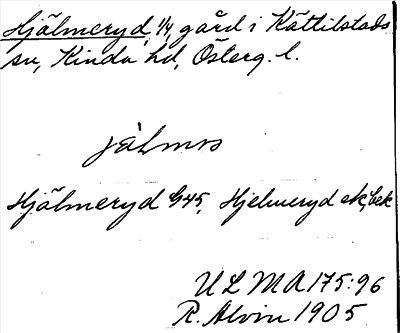 Hjälmeryd, 1/4, gård i Kättilstads
sn, Kinda hd, Österg. l.
Hjälmeryd G45, Hjelmeryd ek, bek
ULMA 175:96
R. Alvin 1905